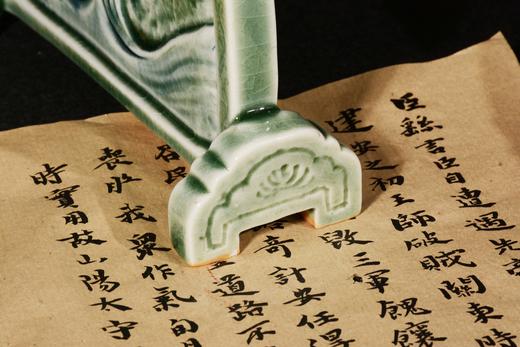 臣繇言臣自遭遇先
建安之初王師破賊關東時
毀三軍餽饟
奇計委任得
谷民
道路不
喪膽我眾作氣旬
時實用故山陽太守